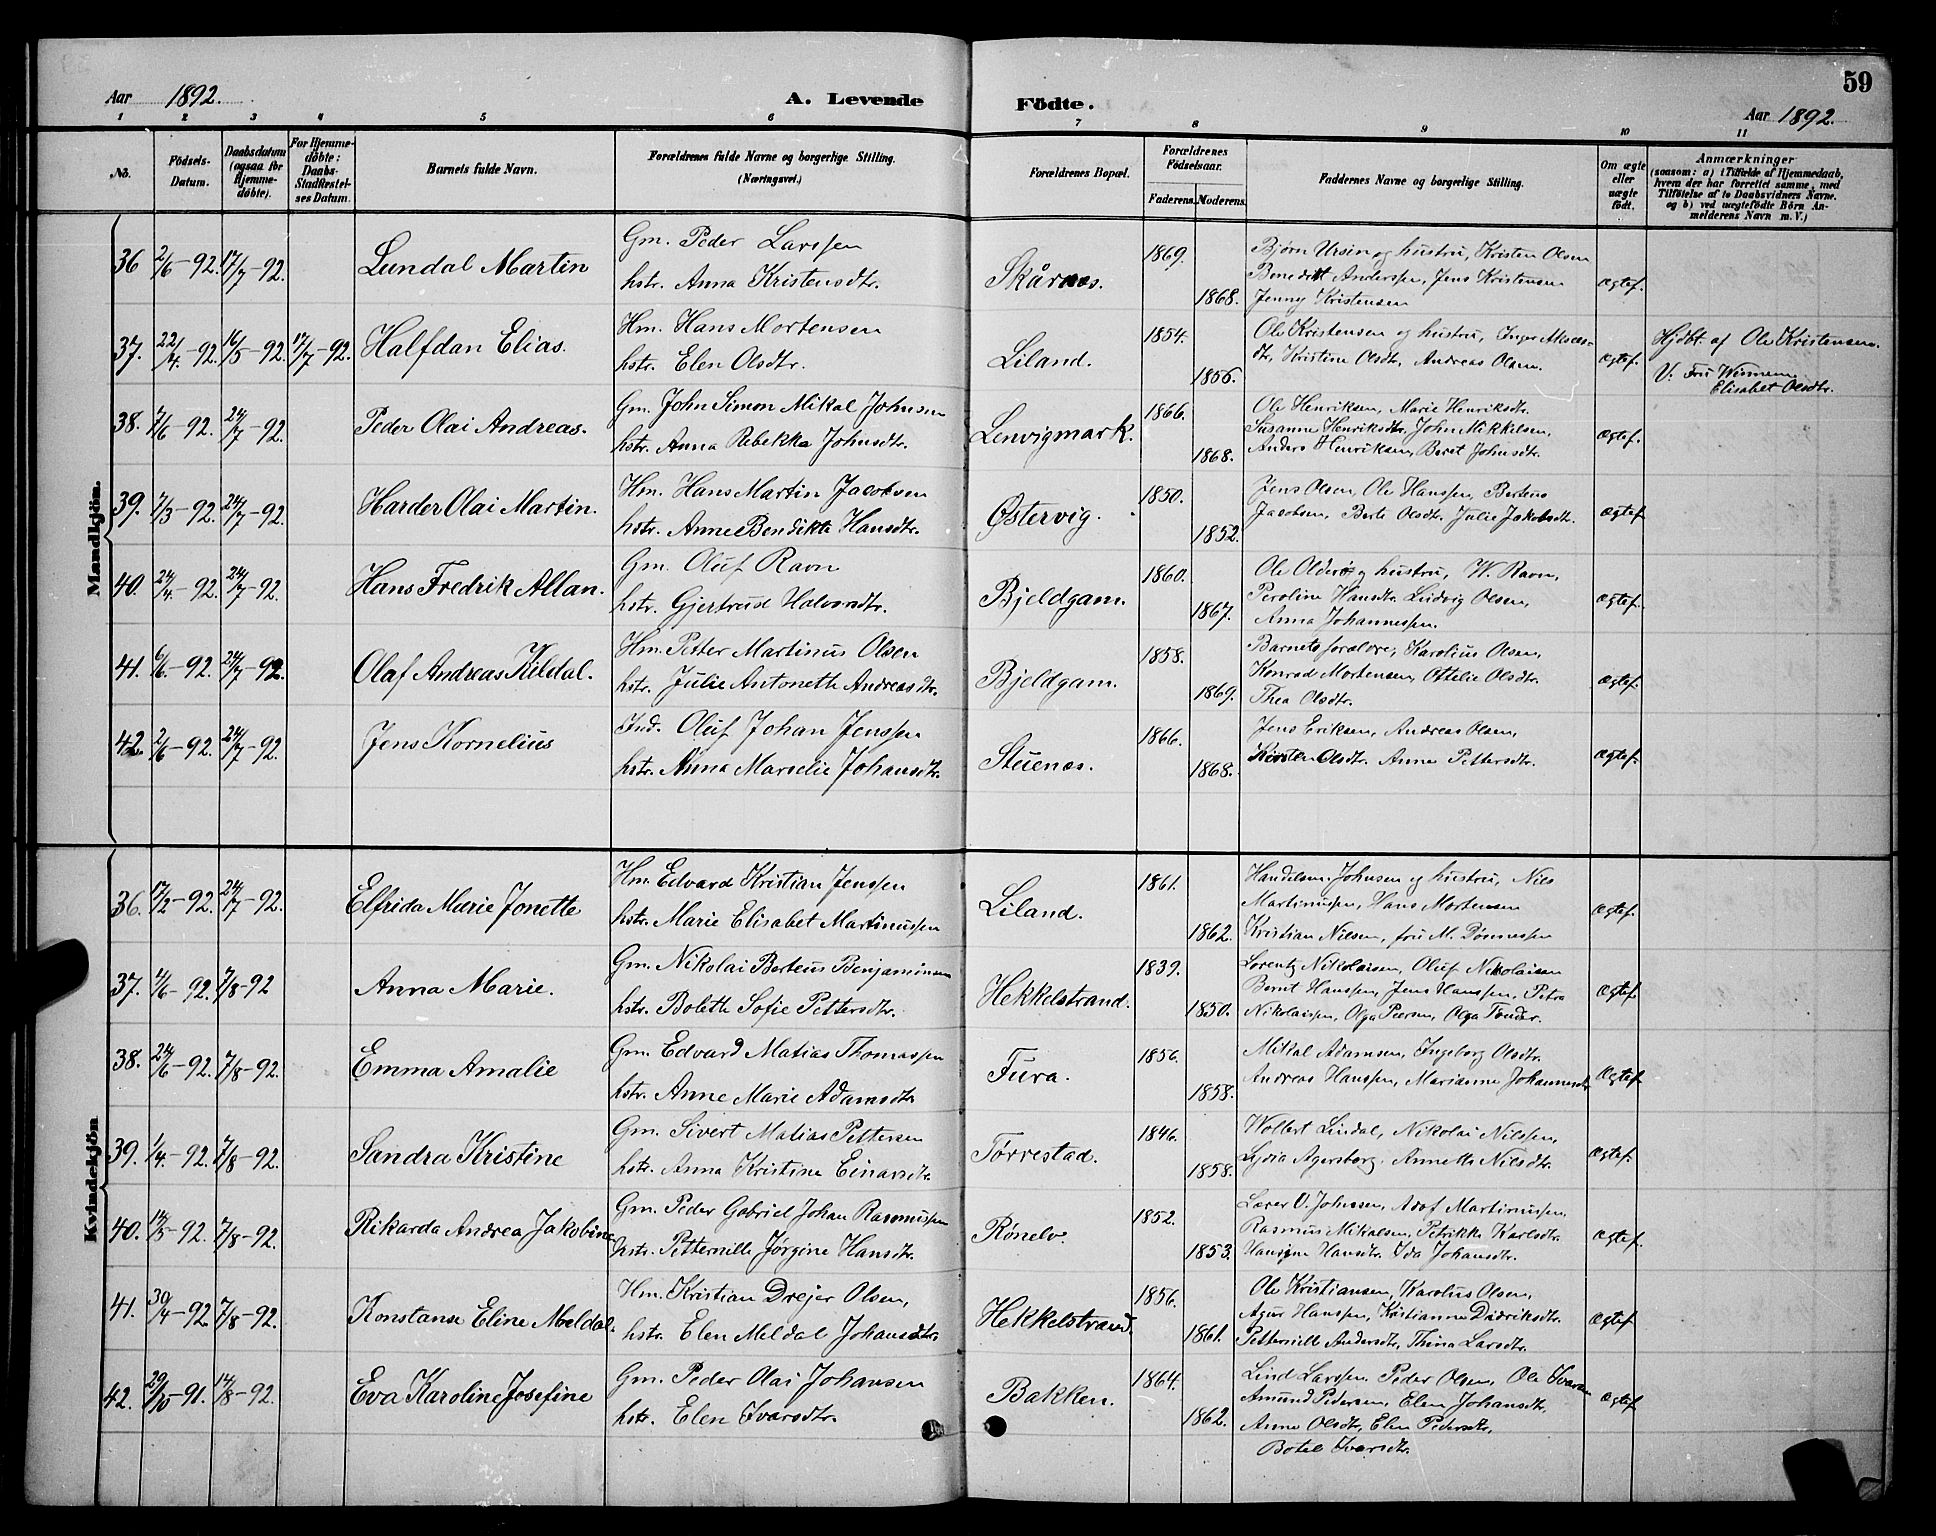 59
Aar 1892. A. Levende Födte. Aar 1892.
1 2 3 4 5 6 7 8 9 10 11
No. Födsels-Datum. Daabsdatum (ogsaa for Hjemme-döbte). For Hjemme-döbte: Daabs-Stadfæstel-ses Datum. Barnets fulde Navn. Forældrenes fulde Navne og borgerlige Stilling. (Næringsvei.) Forældrenes Bopæl. Forældrenes Födselsaar. Faderens. Moderens. Faddernes Navne og borgerlige Stilling. Om ægte eller uægte født. Anmærkninger (saasom: a) i Tilfælde af Hjemmedaab, hvem der har forrettet samme, med Tilföielse af to Daabsvidners Navne. og b) ved uægtefödte Börn An-melderens Navn m. V.)
Mandkjön.
36 2/6-92. 17/7-92. Lundal Martin Gm. Peder Larssen Skårnes. 1869. Bjørn Ursin og hustru, Kristen Olsen
hstr. Anna Kristensdtr. 1868. Benedikt Anderssen, Jens Kristensen Ægtef.
Jenny Kristensen
37. 22/4-92. 16/5-92. 17/7-92. Halfdan Elias. Hm. Hans Mortensen Liland. 1854. Ole Kristensen og hustru, Inger Aksels- Hjdbt. af Ole Kristensen.
hstr. Elen Olsdtr. 1856. dtr, Kristine Olsdtr, Andreas Olsen. Ægtef. V: Fru
Elisabet Olsdtr.
38. 7/6-92. 24/7-92. Peder Olai Andreas. Gm. John Simon Mikal Johnsen Lenvigmark. 1866. Ole Henriksen, Marie Henriksdtr.
hstr. Anna Rebekka Johnsdtr. 1868. Susanne Henriksdtr, John Mikkelsen, Ægtef.
Anders Henriksen, Beret Johnsdtr.
39. 7/3-92. 24/7-92. Harder Olai Martin. Hm. Hans Martin Jacobsen Østervig. 1850. Jens Olsen, Ole Hanssen, Berteus
hstr. Anne Bendikte Hansdtr. 1852. Jacobsen, Berte Olsdtr. Julie Jakobsdtr. Ægtef
40. 24/4-92. 24/7-92. Hans Fredrik Allan. Gm. Oluf Ravn Bjeldgam. 1860. Ole Olderø og hustru, W. Ravn,
hstr. Gjertrud Halvordtr. 1867. Peroline Hansdtr. Ludvig Olsen, Ægtef.
Anna Johannessen.
41. 6/6-92. 24/7-92. Olaf Andreas Kildal. Hm. Petter Martinus Olsen Bjeldgam. 1858. Barnets forældre, Karolius Olsen,
hstr. Julie Antonette Andreasdtr. 1869. Konrad Mortensen, Ottelie Olsdtr. Ægtef.
Thea Olsdtr.
42. 2/6-92. 24/7-92. Jens Kornelius Ind. Oluf Johan Jenssen Stuenes. 1866. Jens Eriksen, Andreas Olsen,
hstr. Anna Marselie Johansdtr. 1868. Kirsten Olsdtr. Anne Pettersdtr. Ægtef.
Kvindekjön
36. 17/2-92. 24/7-92. Elfrida Marie Jonette Hm. Edvard Kristian Jenssen Liland. 1861. Handelsm. Johnsen og hustru, Nils
hstr. Marie Elisabet Martinussen 1862. Martinussen, Hans Mortensen Ægtef.
Kristian Nilsen, fru M. Dønnessen
37. 4/6-92. 7/8-92 Anna Marie. Gm. Nikolai Berteus Benjaminsen Hekkelstrand. 1839. Lorentz Nikolaisen, Oluf Nikolaisen
hstr. Bolette Sofie Pettersdtr. 1850. Bernt Hanssen, Jens Hanssen, Petra Ægtef.
Nikolaissen, Olga Piersen, Olga Tonder.
38. 24/6-92. 7/8-92. Emma Amalie Gm. Edvard Matias Thomassen Fura. 1856. Mikal Adamsen, Ingeborg Olsdtr.
hstr. Anne Marie Adamsdtr 1858. Andreas Hanssen, Marianne Johannesdtr Ægtef.
39. 1/4-92. 7/8-92. Sandra Kristine Gm. Sivert Matias Pettersen Tørrestad. 1846. Wolbert Lindal, Nikolai Nilssen,
hstr. Anna Kristina Einarsdtr. 1858. Lydia Agersborg. Annette Nilsdtr. Ægtef.
40. 14/5-92. 7/8-92. Rikarda Andrea Jakobine Gm. Peder Gabriel Johan Rasmussen Rönelv. 1852. Lærer O. Johnsen, Adof Martinussen,
hstr. Petternille Jørgine Hansdtr. 1853. Rasmus Mikalsen, Petrikke Karlsdtr. Ægtef.
Hansine Hansdtr. Ida Johansdtr.
41. 30/4-92. 7/8-92. Konstanse Eline Meldal. Hm. Kristian Drejer Olsen, Hekkelstrand. 1856. Ole Kristiansen, Karolus Olsen,
hstr. Elen Meldal Johansdtr. 1861. Agur Hanssen, Kristianne Didriksdtr. Ægtef.
Petternille Andersdtr, Thina Larsdtr.
42. 29/10-91. 14/8-92. Eva Karoline Josefine Gm. Peder Olai Johansen Bakken. 1864. Lind Larssen, Peder Olsen, Ole Ivarsen
hstr. Elen Ivarsdtr. 1862. Amund Pedersen, Elen Johansdtr, Ægtef
Anne Olsdtr, Elen Pedersdtr,
Botel Ivarsdtr.